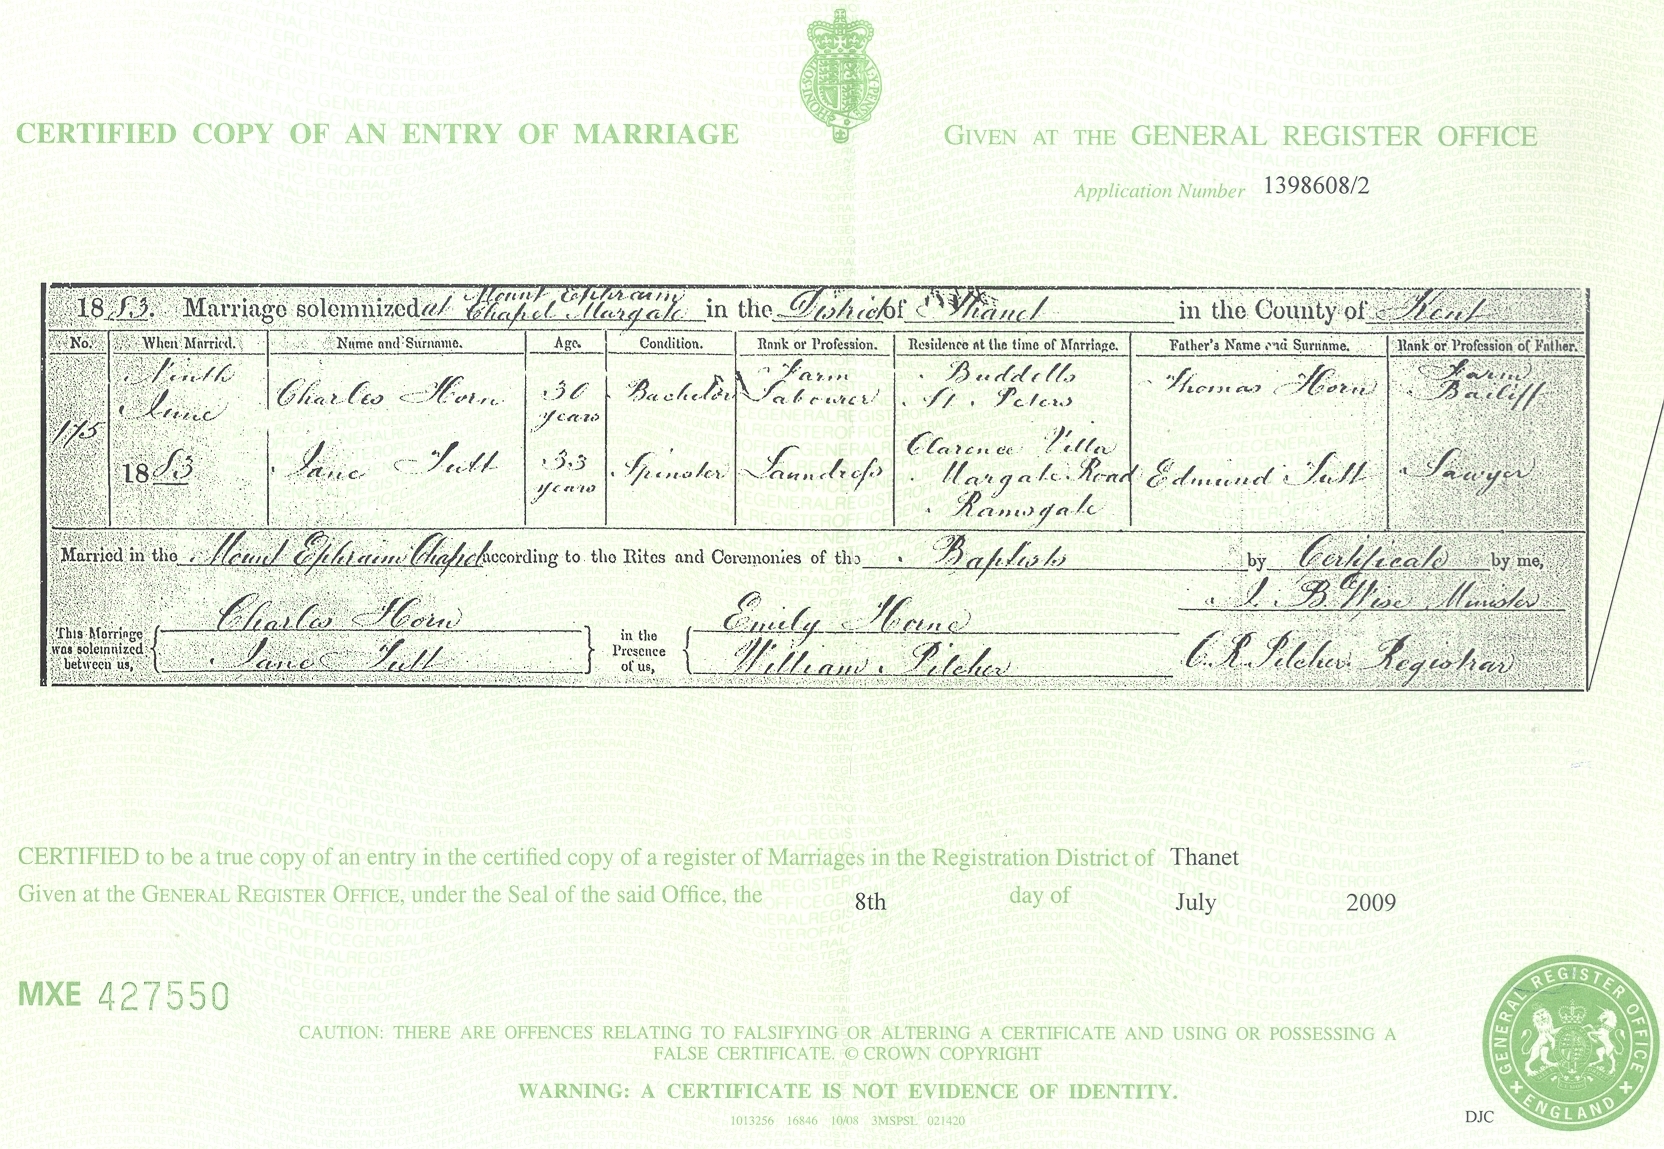 CERTIFIED COPY OF AN ENTRY OF MARRIAGE
GIVEN AT THE GENERAL REGISTER OFFICE
Application Number 1398608/2
1883. Marriage solemnized at Mount Ephraim Chapel Margate in the District of Thanet in the County of Kent
No. When Married. Name and Surname. Age. Condition. Rank or Profession. Residence at the time of Marriage. Father's Name and Surname. Rank or Profession of Father.
175
Ninth June 1883
Charles Horn 30 years Bachelor Farm Labourer Buddells St. Peters Thomas Horn Farm Bailiff
Jane Tutt 33 years Spinster Laundress Clarence Villa Margate Road Ramsgate Edmund Tutt Sawyer
Married in the Mount Ephraim Chapel according to the Rites and Ceremonies of the Baptists by Certificate by me,
J. B. Wise Minister
This Marriage was solemnized between us,
Charles Horn
Jane Tutt
in the Presence of us,
Emily Horne
William Pilcher
C. R. Pilcher Registrar
CERTIFIED to be a true copy of an entry in the certified copy of a register of Marriages in the Registration District of Thanet
Given at the GENERAL REGISTER OFFICE, under the Seal of the said Office, the 8th day of July 2009
MXE 427550
CAUTION: THERE ARE OFFENCES RELATING TO FALSIFYING OR ALTERING A CERTIFICATE AND USING OR POSSESSING A
FALSE CERTIFICATE. © CROWN COPYRIGHT
WARNING: A CERTIFICATE IS NOT EVIDENCE OF IDENTITY.
1013256 16846 10/08 3MSPSL 021420
DJC
GENERAL REGISTER OFFICE
ENGLAND